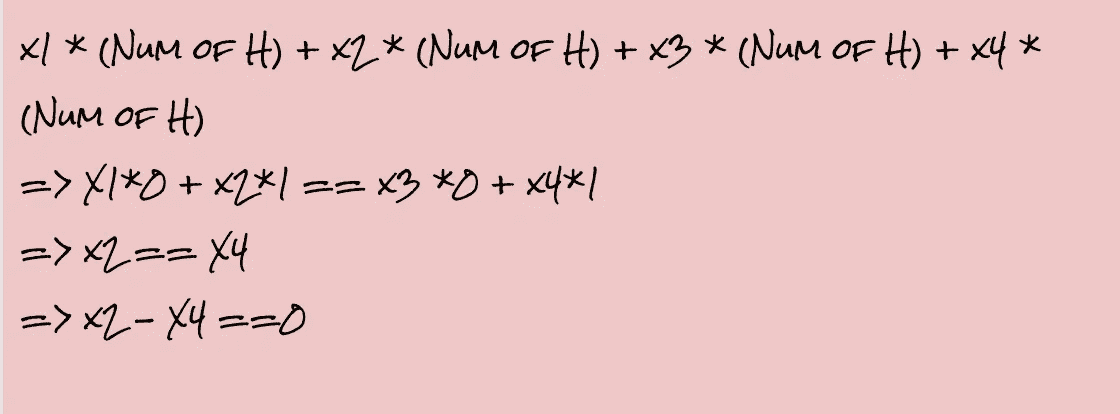 x1 * (NUM OF H) + x2 * (NUM OF H) + x3 * (NUM OF H) + x4 *
(NUM OF H)
=> X1*0 + x2*1 == x3 *0 + x4*1
=> x2 == X4
=> x2 - X4 ==0